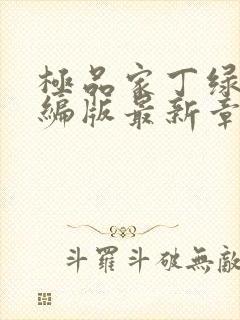 極品家丁绿
編版最新章
斗羅斗破無敵